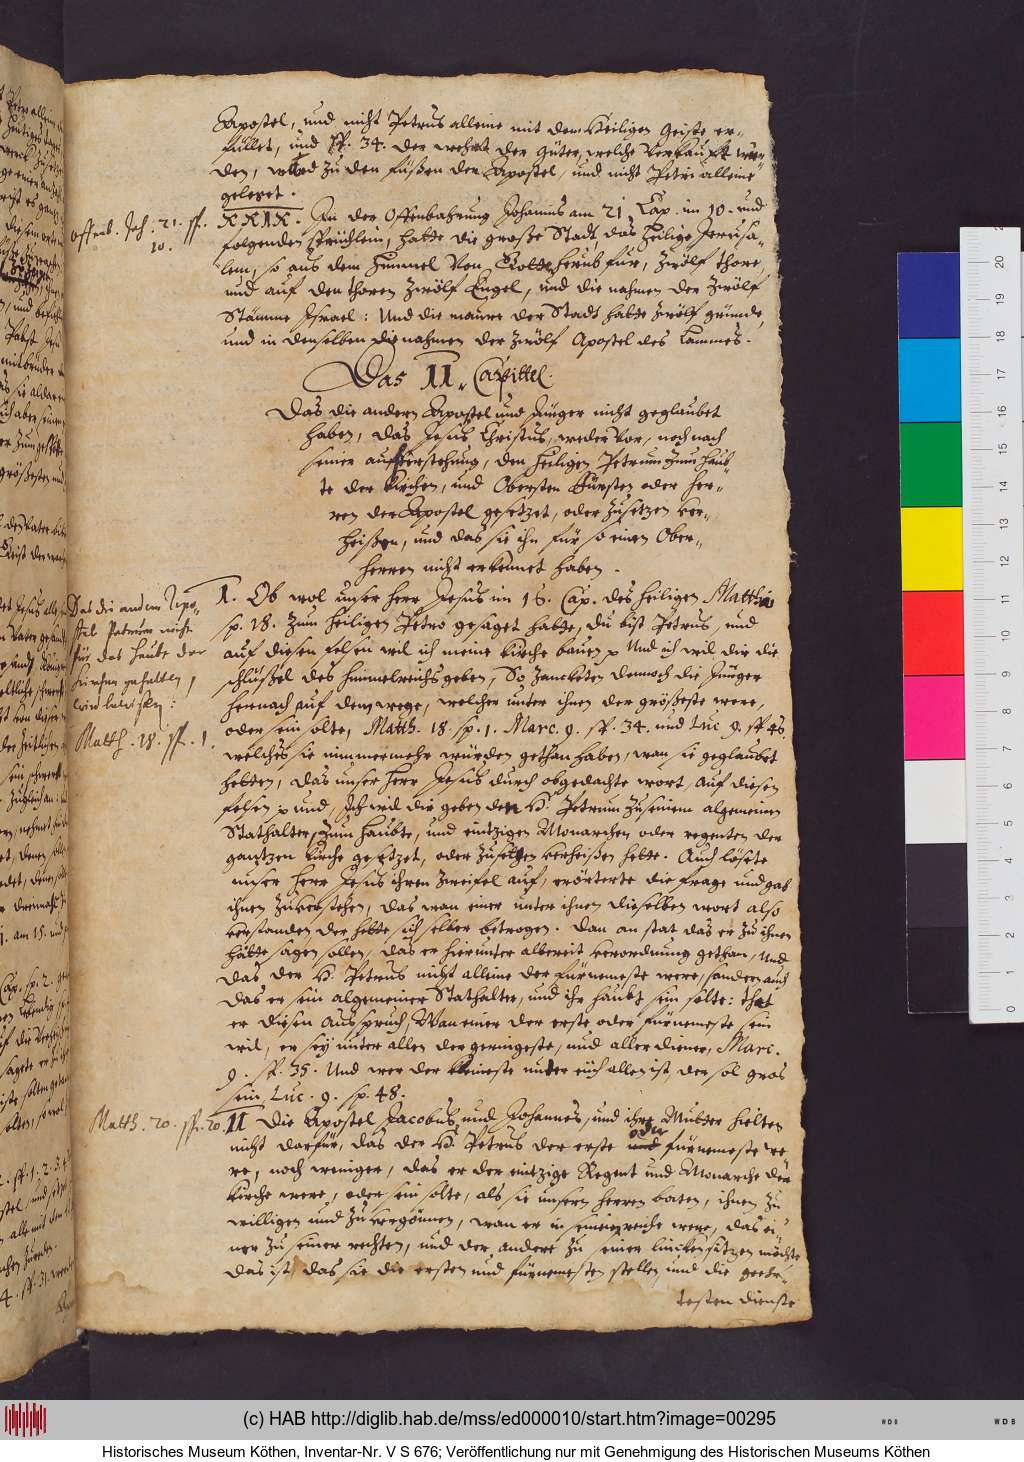 Apostel, und nicht Petrus alleine mit dem Heiligen Geiste er-
füllet, und sp. 34. der wehrt der Güter, welche verkaufft wur-
den, ward zu den füßen der Apostel, und nicht Petri alleine
geleget.
Offenb. Joh. 21. sp. 10.
XXIX. In der Offenbahrung Johannis am 21 Cap. im 10. und
folgenden sprüchlein, hatte die große Stadt, das Heilige Jerusa-
lem, so aus dem Himmel von Gotte herab fur, zwölf thore,
und auf den thoren zwölf Engel, und die nahmen der zwölf
Stämme Israel: Und die maure der Stadt hatte zwölf gründe,
und in denselben die nahmen der zwölf Apostel des Lammes.
Das II. Capittel.
Das die andern Apostel und Jünger nicht geglaubet
haben, das Jesus Christus, weder vor, noch nach
seiner auferstehung, den Heiligen Petrum zum Haub-
te der Kirchen, und Obersten Fürsten oder Her-
ren der Apostel gesetzet, oder zusetzen ver-
heißen, und das sie ihn für so einen Ober-
herren nicht erkennet haben.
Das die andern Apo-
stel Petrum nicht
für das Haubt der
Kirchen gehalten,
wird bewiesen:
Matth. 18. sp. 1.
I. Ob wol unser Herr Jesus im 16. Cap. des Heiligen Matthæi
sp. 18. zum Heiligen Petro gesaget hatte, du bist Petrus, und
auf diesen felsen wil ich meine Kirche bauen, Und ich wil dir die
schlüßel des himmelreichs geben, So zancketen dennoch die Jünger
hernach auf dem wege, welcher unter ihnen der größeste were,
oder sein solte, Matth. 18. sp. 1. Marc. 9. sp. 34. und Luc. 9. sp. 46.
welches sie nimmermehr würden gethan haben, wan sie geglaubet
hetten, das unser Herr Jesus durch obgedachte wort auf diesen
felsen und Ich wil dir geben den H. Petrum zu seinem algemeinen
Stathalter, zum haubte, und eintzigen Monarchen oder regenten der
gantzen Kirche gesetzet, oder zusetzen verheißen hette. Auch lösete
unser Herr Jesus ihren zweifel auf, erörterte die frage und gab
ihnen zuverstehen, das wan einer unter ihnen dieselben wort also
verstanden der hette sich selber betrogen. Dan an stat das er zu ihnen
hätte sagen sollen, das er hierunter albereit verordnung gethan, Und
das der H. Petrus nicht alleine der fürnemeste were, sondern auch
das er sein algemeiner Stathalter, und ihr haubt sein solte: that
er diesen ausspruch, Wan einer der erste oder fürnemeste sein
wil, er sey unter allen der geringeste, und aller diener, Marc.
9. sp. 35. Und wer der kleineste unter euch allen ist, der sol gros
sein Luc. 9. sp. 48.
Matth. 20. sp. 20.
II Die Apostel Jacobus und Johannes, und ihre Mutter hielten
nicht darfür, das der H. Petrus der erste oder fürnemeste we-
re, noch weniger, das er der eintzige Regent und Monarche der
Kirche were, oder sein solte, als sie unsern Herren baten, ihnen zu
willigen und zu vergönnen, wan er in seinem reiche were, das ei-
ner zu seiner rechten, und der andere zu seiner lincken sitzen möchte
das ist, das sie die ersten und fürnemesten stellen, und die geehr-
testen dienste
(c) HAB http://diglib.hab.de/mss/ed000010/start.htm?image=00295
Historisches Museum Köthen, Inventar-Nr. V S 676; Veröffentlichung nur mit Genehmigung des Historischen Museums Köthen